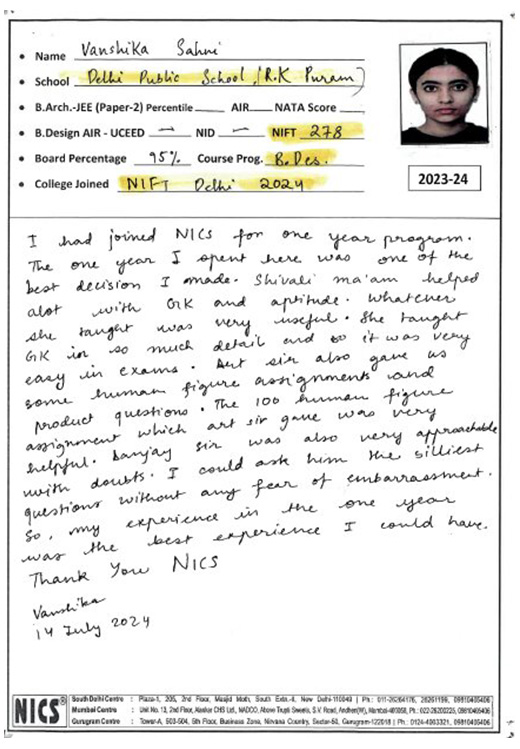 • Name Vanshika Sahni
• School Delhi Public School, (R.K Puram)
• B.Arch.-JEE (Paper-2) Percentile AIR NATA Score
• B.Design AIR - UCEED — NID — NIFT 278
• Board Percentage 95% Course Prog. B.Des.
• College Joined NIFT Delhi 2024
2023-24
I had joined NICS for one year program.
The one year I spent here was one of the
best decision I made. Shivali ma'am helped
alot with GK and aptitude. Whatever
she taught was very useful. She taught
GK in so much detail and so it was very
easy in exams. Art sir also gave us
some human figure assignments and
product questions. The 100 human figure
assignment which art sir gave was very
helpful. Sanjay sir was also very approachable
with doubts. I could ask him the silliest
questions without any fear of embarrassment.
So, my experience in the one year
was the best experience I could have.
Thank You NICS
Vanshika
14 July 2024
NICS®
South Delhi Centre : Plaza-1, 205, 2nd Floor, Masjid Moth, South Extn.-II, New Delhi-110049 | Ph.: 011-26264176, 26261199, 09810405406
Mumbai Centre : Unit No. 13, 2nd Floor, CHS Ltd., NADCO, Above Trupti Sweets, S.V. Road, Andheri(W), Mumbai-400058, Ph.: 022-26200225, 09810405406
Gurugram Centre : Tower-A, 503-504, 5th Floor, Business Zone, Nirvana Country, Sector-50, Gurugram-122018 | Ph.: 0124-4003321, 09810405406